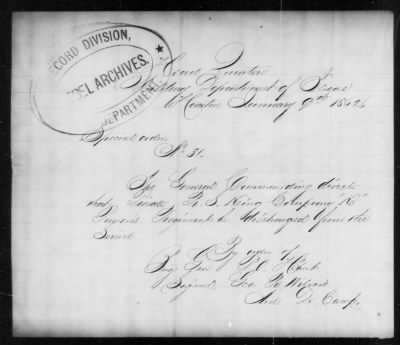 RECORD DIVISION,
REBEL ARCHIVES.
DEPARTMENT
Head Quarters
Military Department of Texas
Houston January 9th 1862
Special orders
No 31.
The General Commanding directs
that Private R. S. King Company "K"
Parsons Regiment be discharged from the
Service
By order of
Brig Gen P O Hébert
Signed Geo R Wilson
Aid D Camp